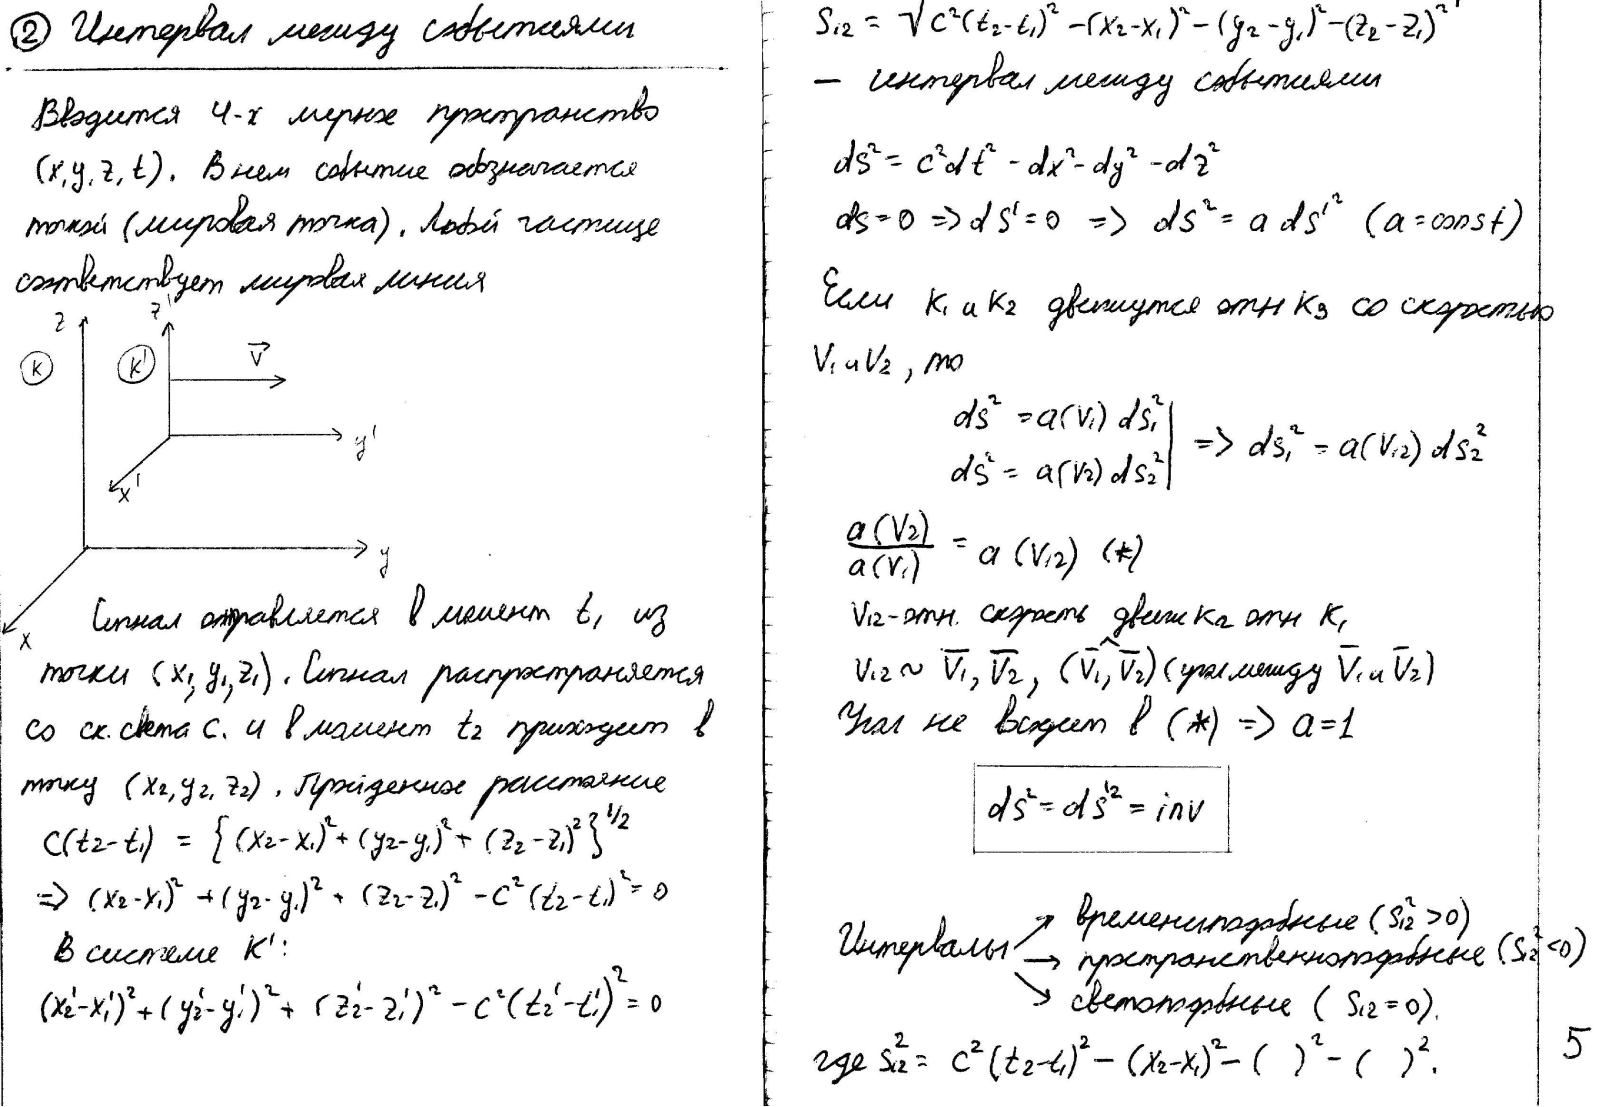 ② Интервал между событиями
Вводится 4-х мерное пространство
(x,y,z,t). В нем событие обозначается
точкой (мировая точка). Любой частице
соответствует мировая линия
z z'
K K' V⃗
y'
x'
y
x
Сигнал отправляется в момент t₁ из
точки (x₁,y₁,z₁). Сигнал распространяется
со ск. света c. и в момент t₂ приходит в
точку (x₂,y₂,z₂). Пройденное расстояние
c(t₂-t₁) = {(x₂-x₁)²+(y₂-y₁)²+(z₂-z₁)²}^1/2
=> (x₂-x₁)²+(y₂-y₁)²+(z₂-z₁)²-c²(t₂-t₁)²=0
В системе K':
(x₂'-x₁')²+(y₂'-y₁')²+(z₂'-z₁')²-c²(t₂'-t₁')²=0
S₁₂ = √c²(t₂-t₁)²-(x₂-x₁)²-(y₂-y₁)²-(z₂-z₁)²
— интервал между событиями
ds² = c²dt² - dx² - dy² - dz²
ds=0 => ds'=0 => ds² = a ds'² (a=const)
Если K₁ и K₂ движутся отн K₃ со скоростью
V₁ и V₂, то
ds² = a(V₁) ds₁²
ds² = a(V₂) ds₂² | => ds₁² = a(V₁₂) ds₂²
a(V₂)/a(V₁) = a(V₁₂) (*)
V₁₂-отн. скорость движ K₂ отн K₁
V₁₂ ~ V̅₁, V̅₂, (V̅₁,^V̅₂) (угол между V̅₁ и V̅₂)
Угол не входит в (*) => a=1
ds² = ds'² = inv
Интервалы → времениподобные (S₁₂²>0)
→ пространственноподобные (S₁₂²<0)
→ светоподобные (S₁₂=0).
где S₁₂² = c²(t₂-t₁)²-(x₂-x₁)²-( )²-( )².
5